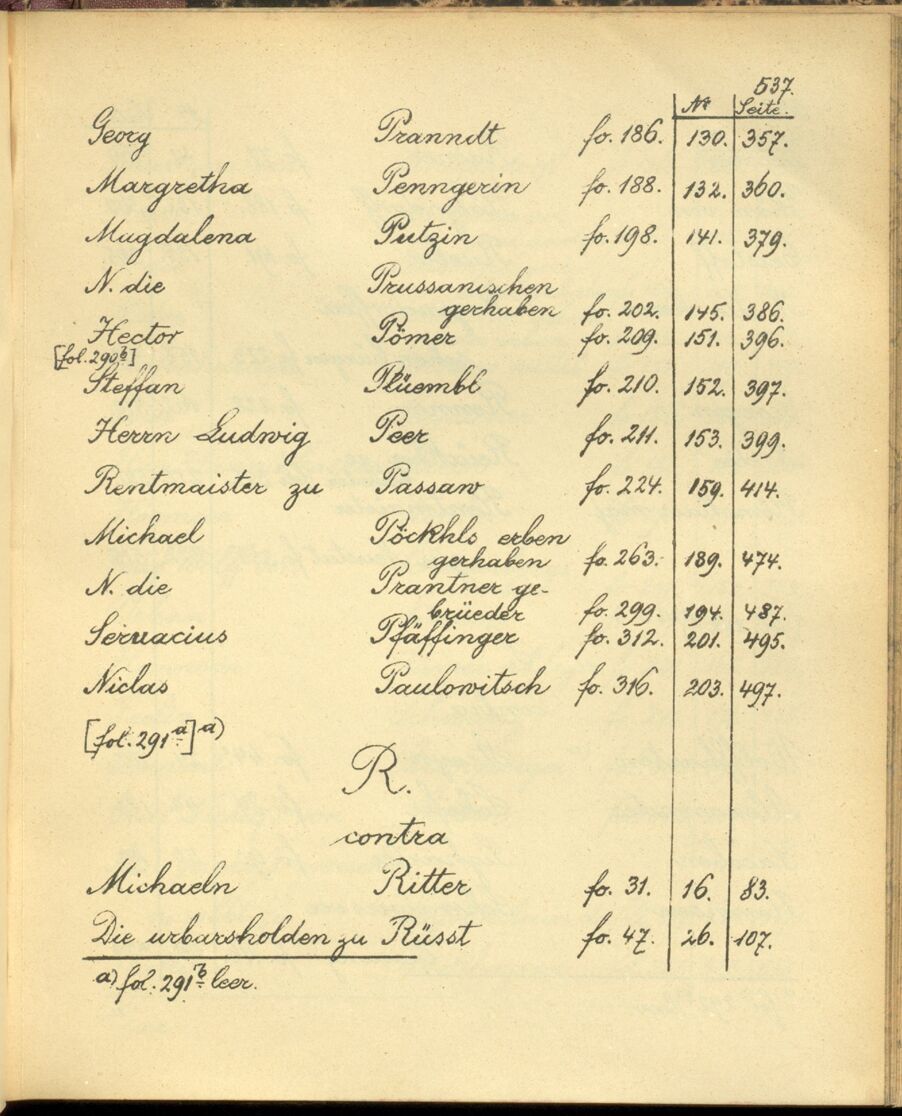 537.
Nr Seite.
Georg Pranndt fo. 186. 130. 357.
Margretha Penngerin fo. 188. 132. 360.
Magdalena Putzin fo. 198. 141. 379.
N. die Prussanischen
gerhaben fo. 202. 145. 386.
Hector Pömer fo. 209. 151. 396.
[fol. 290b]
Steffan Plüembl fo. 210. 152. 397.
Herrn Ludwig Peer fo. 211. 153. 399.
Rentmaister zu Passaw fo. 224. 159. 414.
Michael Pöckhls erben
gerhaben fo. 263. 189. 474.
N. die Prantner ge-
brüeder fo. 299. 194. 487.
Servacius Pfäffinger fo. 312. 201. 495.
Niclas Paulowitsch fo. 316. 203. 497.
[fol. 291a] a)
R.
contra
Michaeln Ritter fo. 31. 16. 83.
Die urbarsholden zu Rüsst fo. 47. 26. 107.
a) fol. 291b leer.